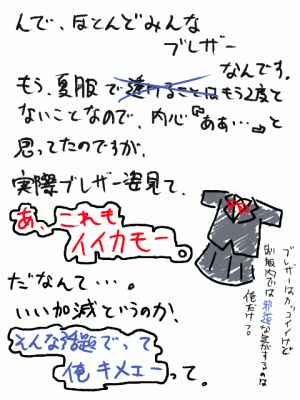 んで、ほとんどみんな
ブレザー
なんです。
もう、夏服で透けることはもう2度と
ないことなので、内心『ああ…』と
思ってたのですが、
実際ブレザー姿見て、
あ、これも
イイカモー
だなんて…。
いい加減というのか、
そんな話題でって
俺キメエーって。
ブレザーはカッコイイけど
制服内では邪道な気がするのは
俺だけ?。